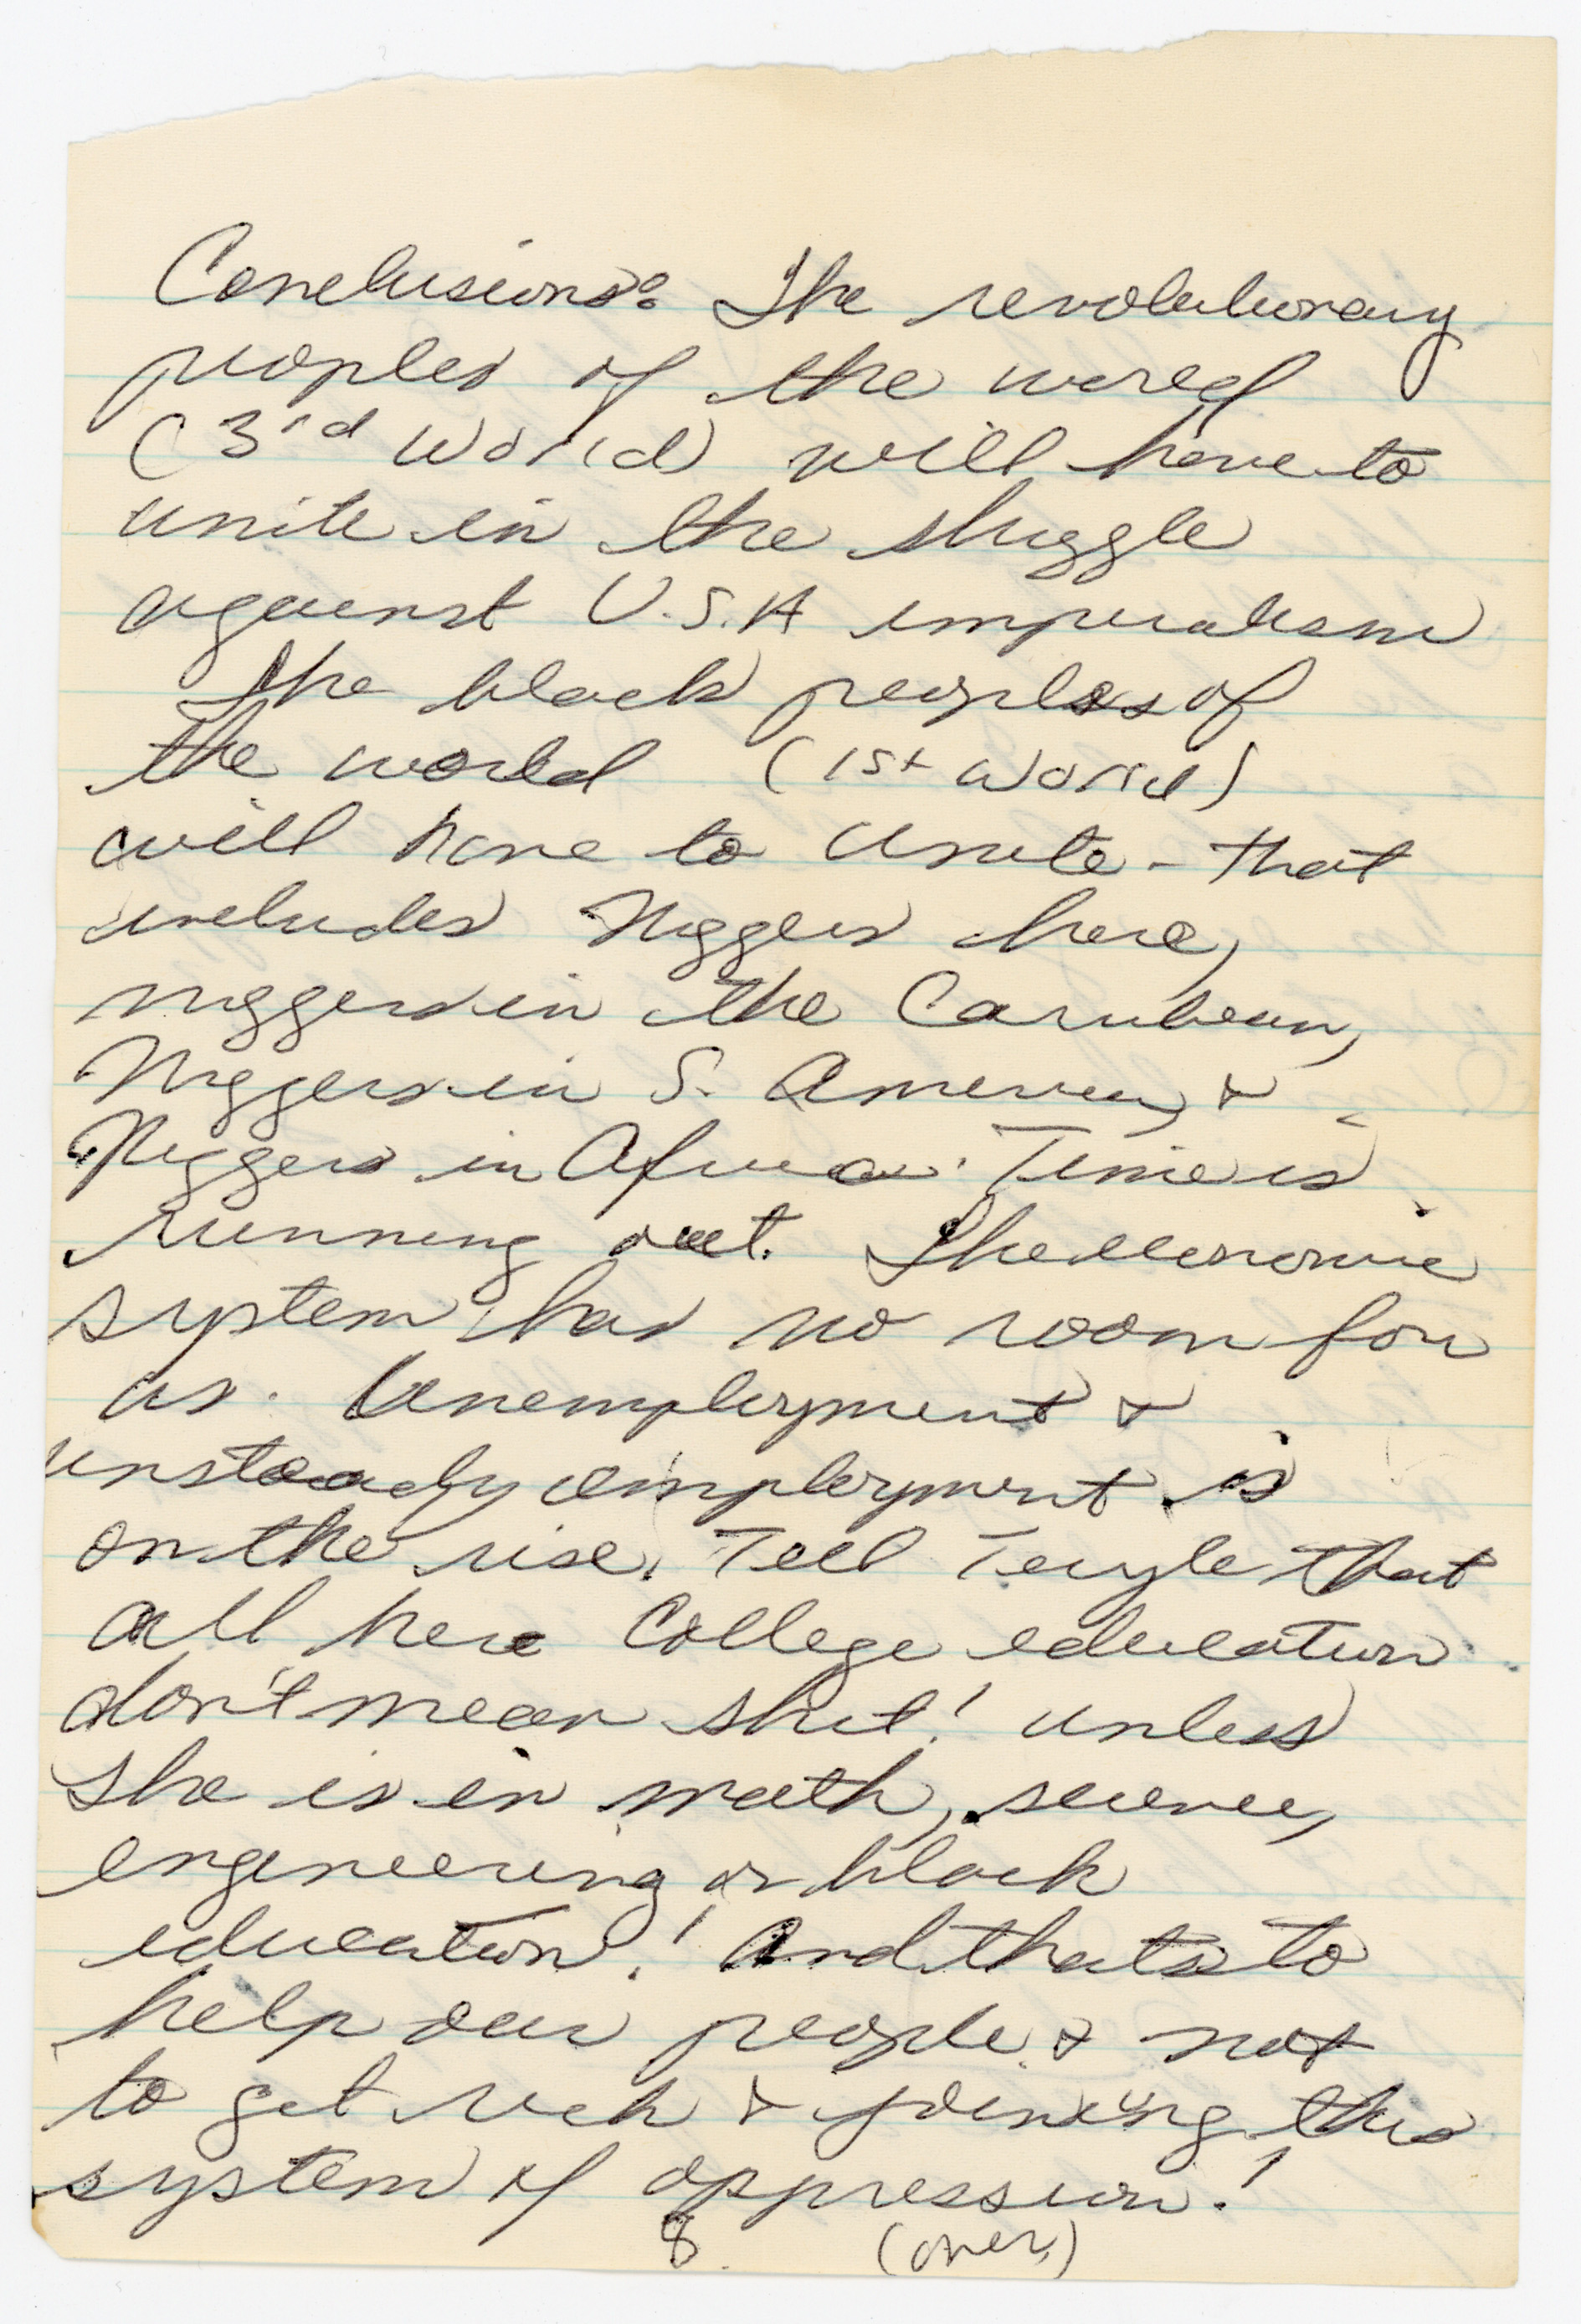 Conclusions: The revolutionary
peoples of the world
(3rd World) will have to
unite in the struggle
against U.S.A imperialism
The black peoples of
the world (1st World)
will have to unite - that
includes Niggers here,
niggers in the Caribbean,
Niggers in S. America, &
Niggers in Africa. Time is
running out. The economic
system has no room for
us. Unemployment &
unsteady employment is
on the rise. Tell that
all here College education
don't mean shit! unless
she is in math, science,
engineering or black
education! And thats to
help our people & not
to get rich & joining this
system of oppression!
8 (over)